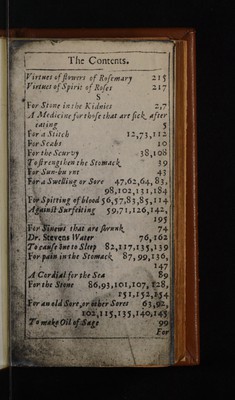 The Contents.
Virtues of flowers of Rosemary 215
Virtues of Spirit of Roses 217
S
For Stone in the Kidnies 2,7
A Medicine for those that are sick after
eating 5
For a Stitch 12,73,112
For Scabs 10
For the Scurvy 38,108
To strengthen the Stomack 39
For Sun-burnt 43
For a Swelling or Sore 47,62,64,83,
98,102,131,184
For Spitting of blood 56,57,83,85,114
Against Surfeiting 59,71,126,142,
195
For Sinews that are shrunk 74
Dr. Stevens Water 76,162
To cause one to Sleep 82,117,135,139
For pain in the Stomack 87,99,136,
147
A Cordial for the Sea 89
For the Stone 86,93,101,107,128,
151,152,154
For an old Sore, or other Sores 63,92,
102,115,135,140,145
To make Oil of Sage 99
For